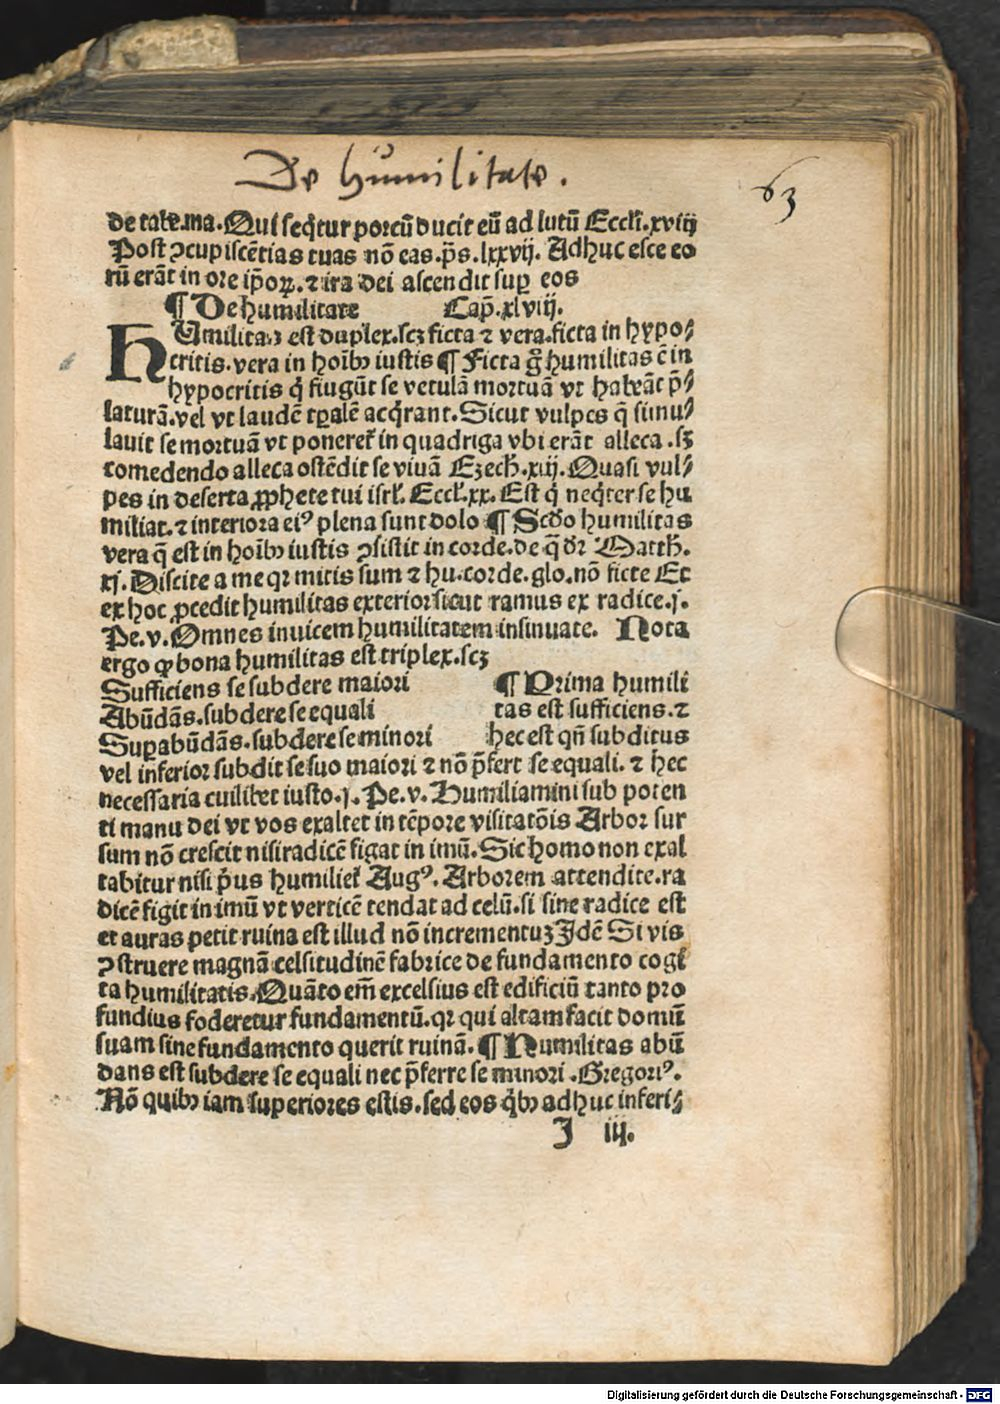 De humilitate.
63
de tabe.ma.Qui seq̃tur porcũ ducit eũ ad lutũ Eccl'i.xviij
Post ɔcupiscẽtias tuas nõ eas.p̃s.lxxvij. Adhuc esce eo
rũ erãt in ore ip̃oꝝ.⁊ ira dei ascendit suꝑ eos
¶ De humilitate Cap̃.xlviij.
HUmilitas est duplex.scꝫ ficta ⁊ vera.ficta in hypo⸗
critis.vera in hoĩbꝰ iustis ¶ Ficta g̃ humilitas ẽ in
hypocritis q̃ fingũt se vetulã mortuã vt habeãt p̃⸗
laturã.vel vt laudẽ tꝑalẽ acq̃rant.Sicut vulpes q̃ simu⸗
lauit se mortuã vt poneret̃ in quadriga vbi erãt alleca.sꝫ
comedendo alleca ostẽdit se viuã Ezech̃.xiij.Quasi vul⸗
pes in deserta ꝓphete tui isrl̃. Eccl̃.xx.Est q̃ neq̃ter se hu
miliat.⁊ interiora eiꝰ plena sunt dolo ¶ Scd̃o humilitas
vera q̃ est in hoĩbꝰ iustis ɔsistit in corde.de q̃ dr̃ Matth̃.
xj.Discite a me qꝛ mitis sum ⁊ hu.corde.glo.nõ ficte Et
ex hoc ꝓcedit humilitas exterior sicut ramus ex radice.j.
Pe.v.Omnes inuicem humilitatem insinuate. Nota
ergo ꝙ bona humilitas est triplex.scꝫ
Sufficiens se subdere maiori ¶ Prima humili
Abũdãs.subdere se equali tas est sufficiens.⁊
Suꝑabũdãs.subdere se minori hec est qñ subditus
vel inferior subdit se suo maiori ⁊ nõ p̃fert se equali.⁊ hec
necessaria cuilibet iusto.j.Pe.v.Humiliamini sub poten
ti manu dei vt vos exaltet in tẽpore visitatõis Arbor sur
sum nõ crescit nisi radicẽ figat in imũ.Sic homo non exal
tabitur nisi p̃us humiliet̃ Augꝰ.Arborem attendite.ra
dicẽ figit in imũ vt verticẽ tendat ad celũ.si sine radice est
et auras petit ruina est illud nõ incrementuꝫ Idẽ Si vis
ɔstruere magnã celsitudinẽ fabrice de fundamento cogi
ta humilitatis.Quãto em̃ excelsius est edificiũ tanto pro
fundius foderetur fundamentũ.qꝛ qui altam facit domũ
suam sine fundamento querit ruinã.¶ Humilitas abũ
dans est subdere se equali nec p̃ferre se minori.Gregoriꝰ.
Nõ quibꝰ iam superiores estis.sed eos q̃bꝰ adhuc inferi⸗
I iij.
Digitalisierung gefördert durch die Deutsche Forschungsgemeinschaft - DFG